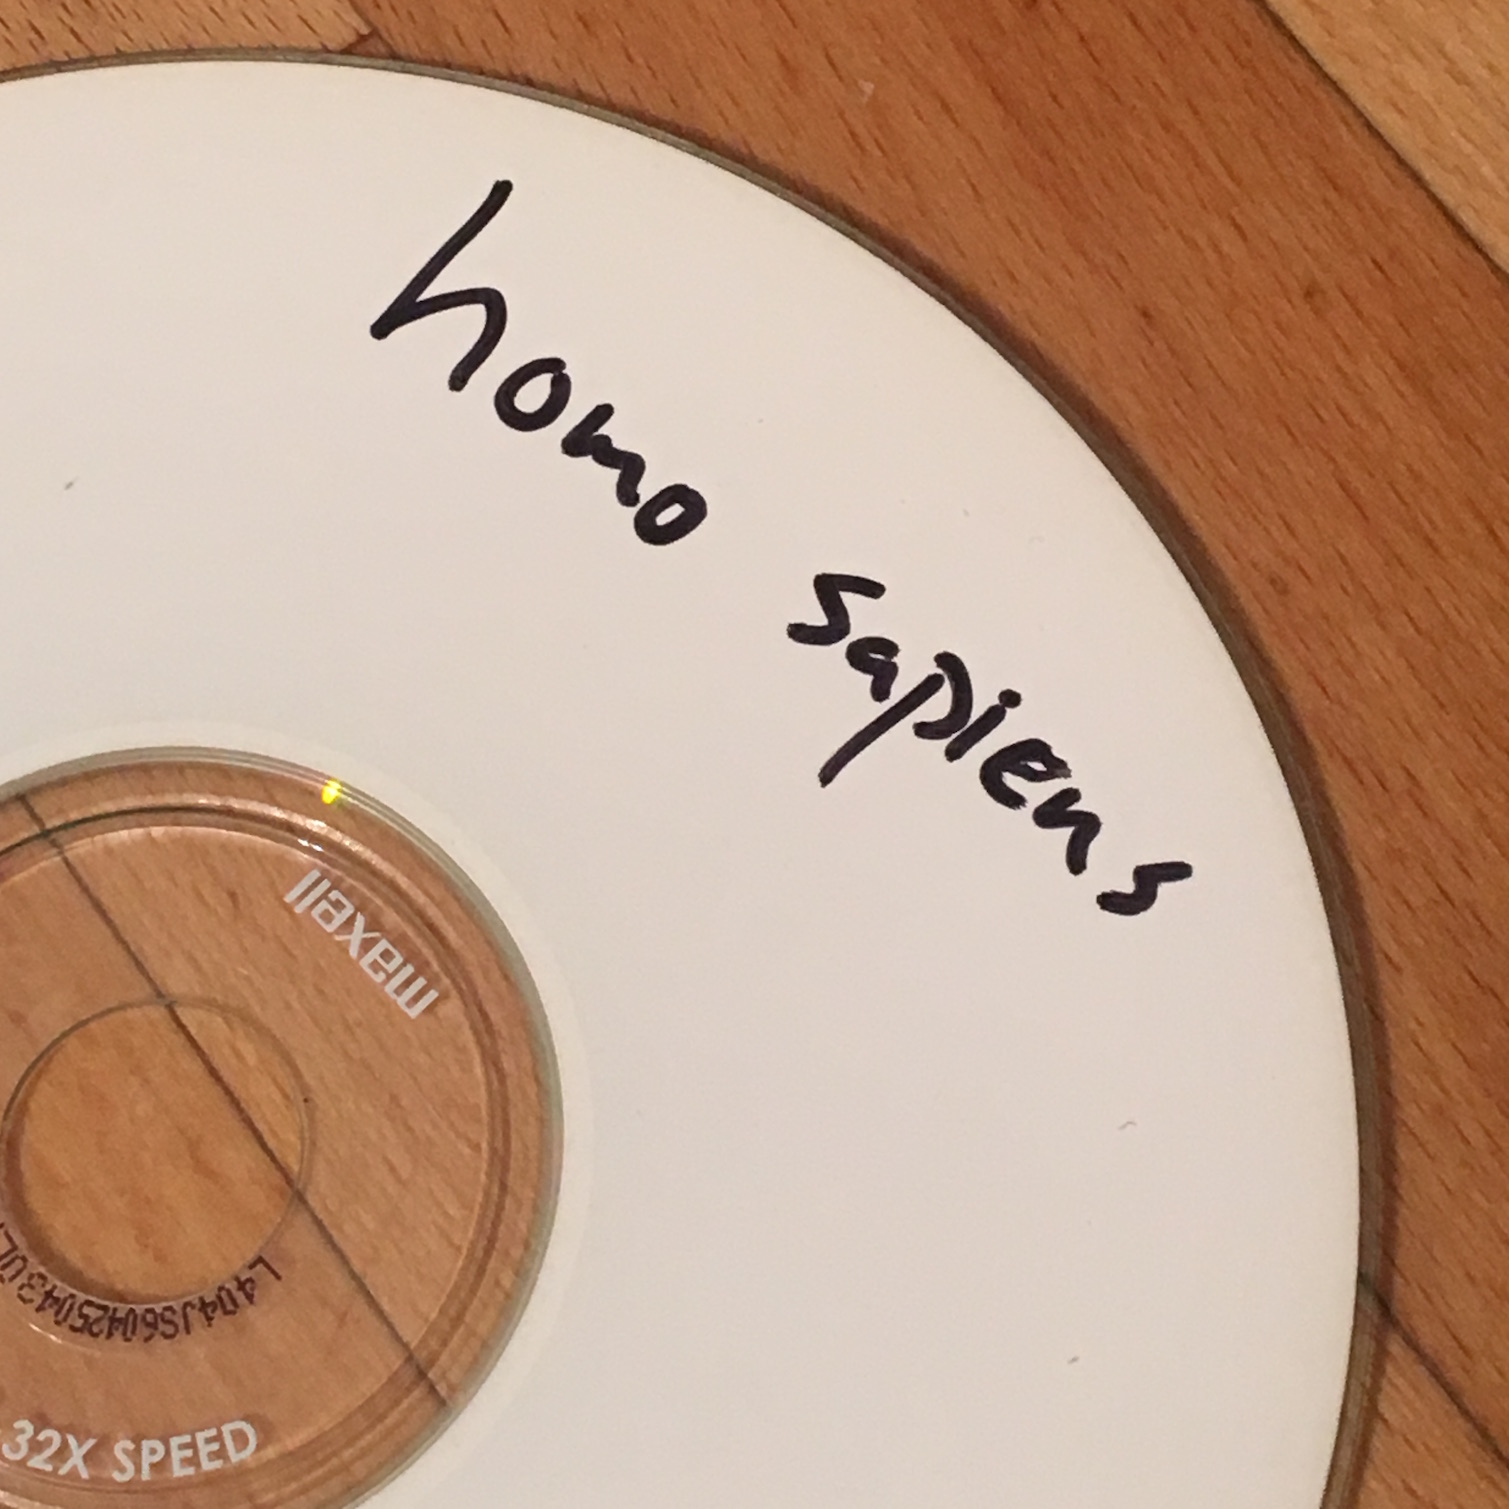 homo sapiens
maxell
L404JS60425043
32X SPEED